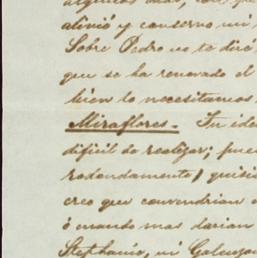 algunos días, con que
alivió y conservo mi
Sobre Pedro no te diré
que se ha renovado el
bien lo necesitamos
Miraflores.- Tu idea
difícil de realizar; pues
redondamente, quisi
creo que convendrian
ó cuando mas darian
Stephanio, ni Galeazo